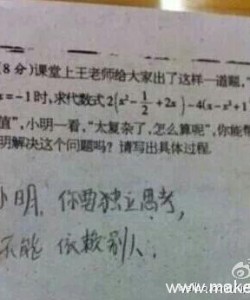 (8分)课堂上王老师给大家出了这样一道题,"
x=-1时,求代数式2(x²-1/2+2x)-4(x-x²+1
值",小明一看,"太复杂了,怎么算呢",你能帮
明解决这个问题吗?请写出具体过程.
小明,你要独立思考,
不能依赖别人.
www.make